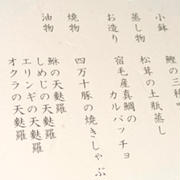 小鉢
鰹の三種
蒸し物
松茸の土瓶蒸し
お造り
宿毛産真鯛の
カルパッチョ
焼物
四万十豚の焼きしゃぶ
油物
鮴の天麩羅
しめじの天麩羅
エリンギの天麩羅
オクラの天麩羅